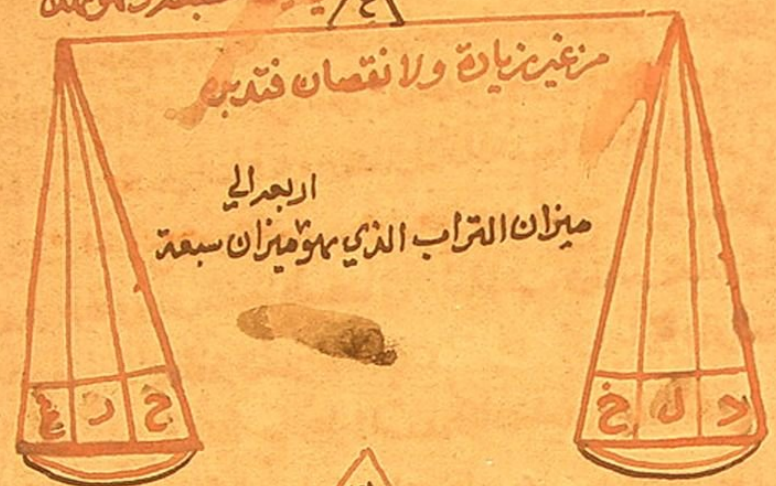 ع
من غير زيادة ولا نقصان فتدبر
اربعة الي
ميزان التراب الذي هو ميزان سبعة
د ل خ
ح ر غ